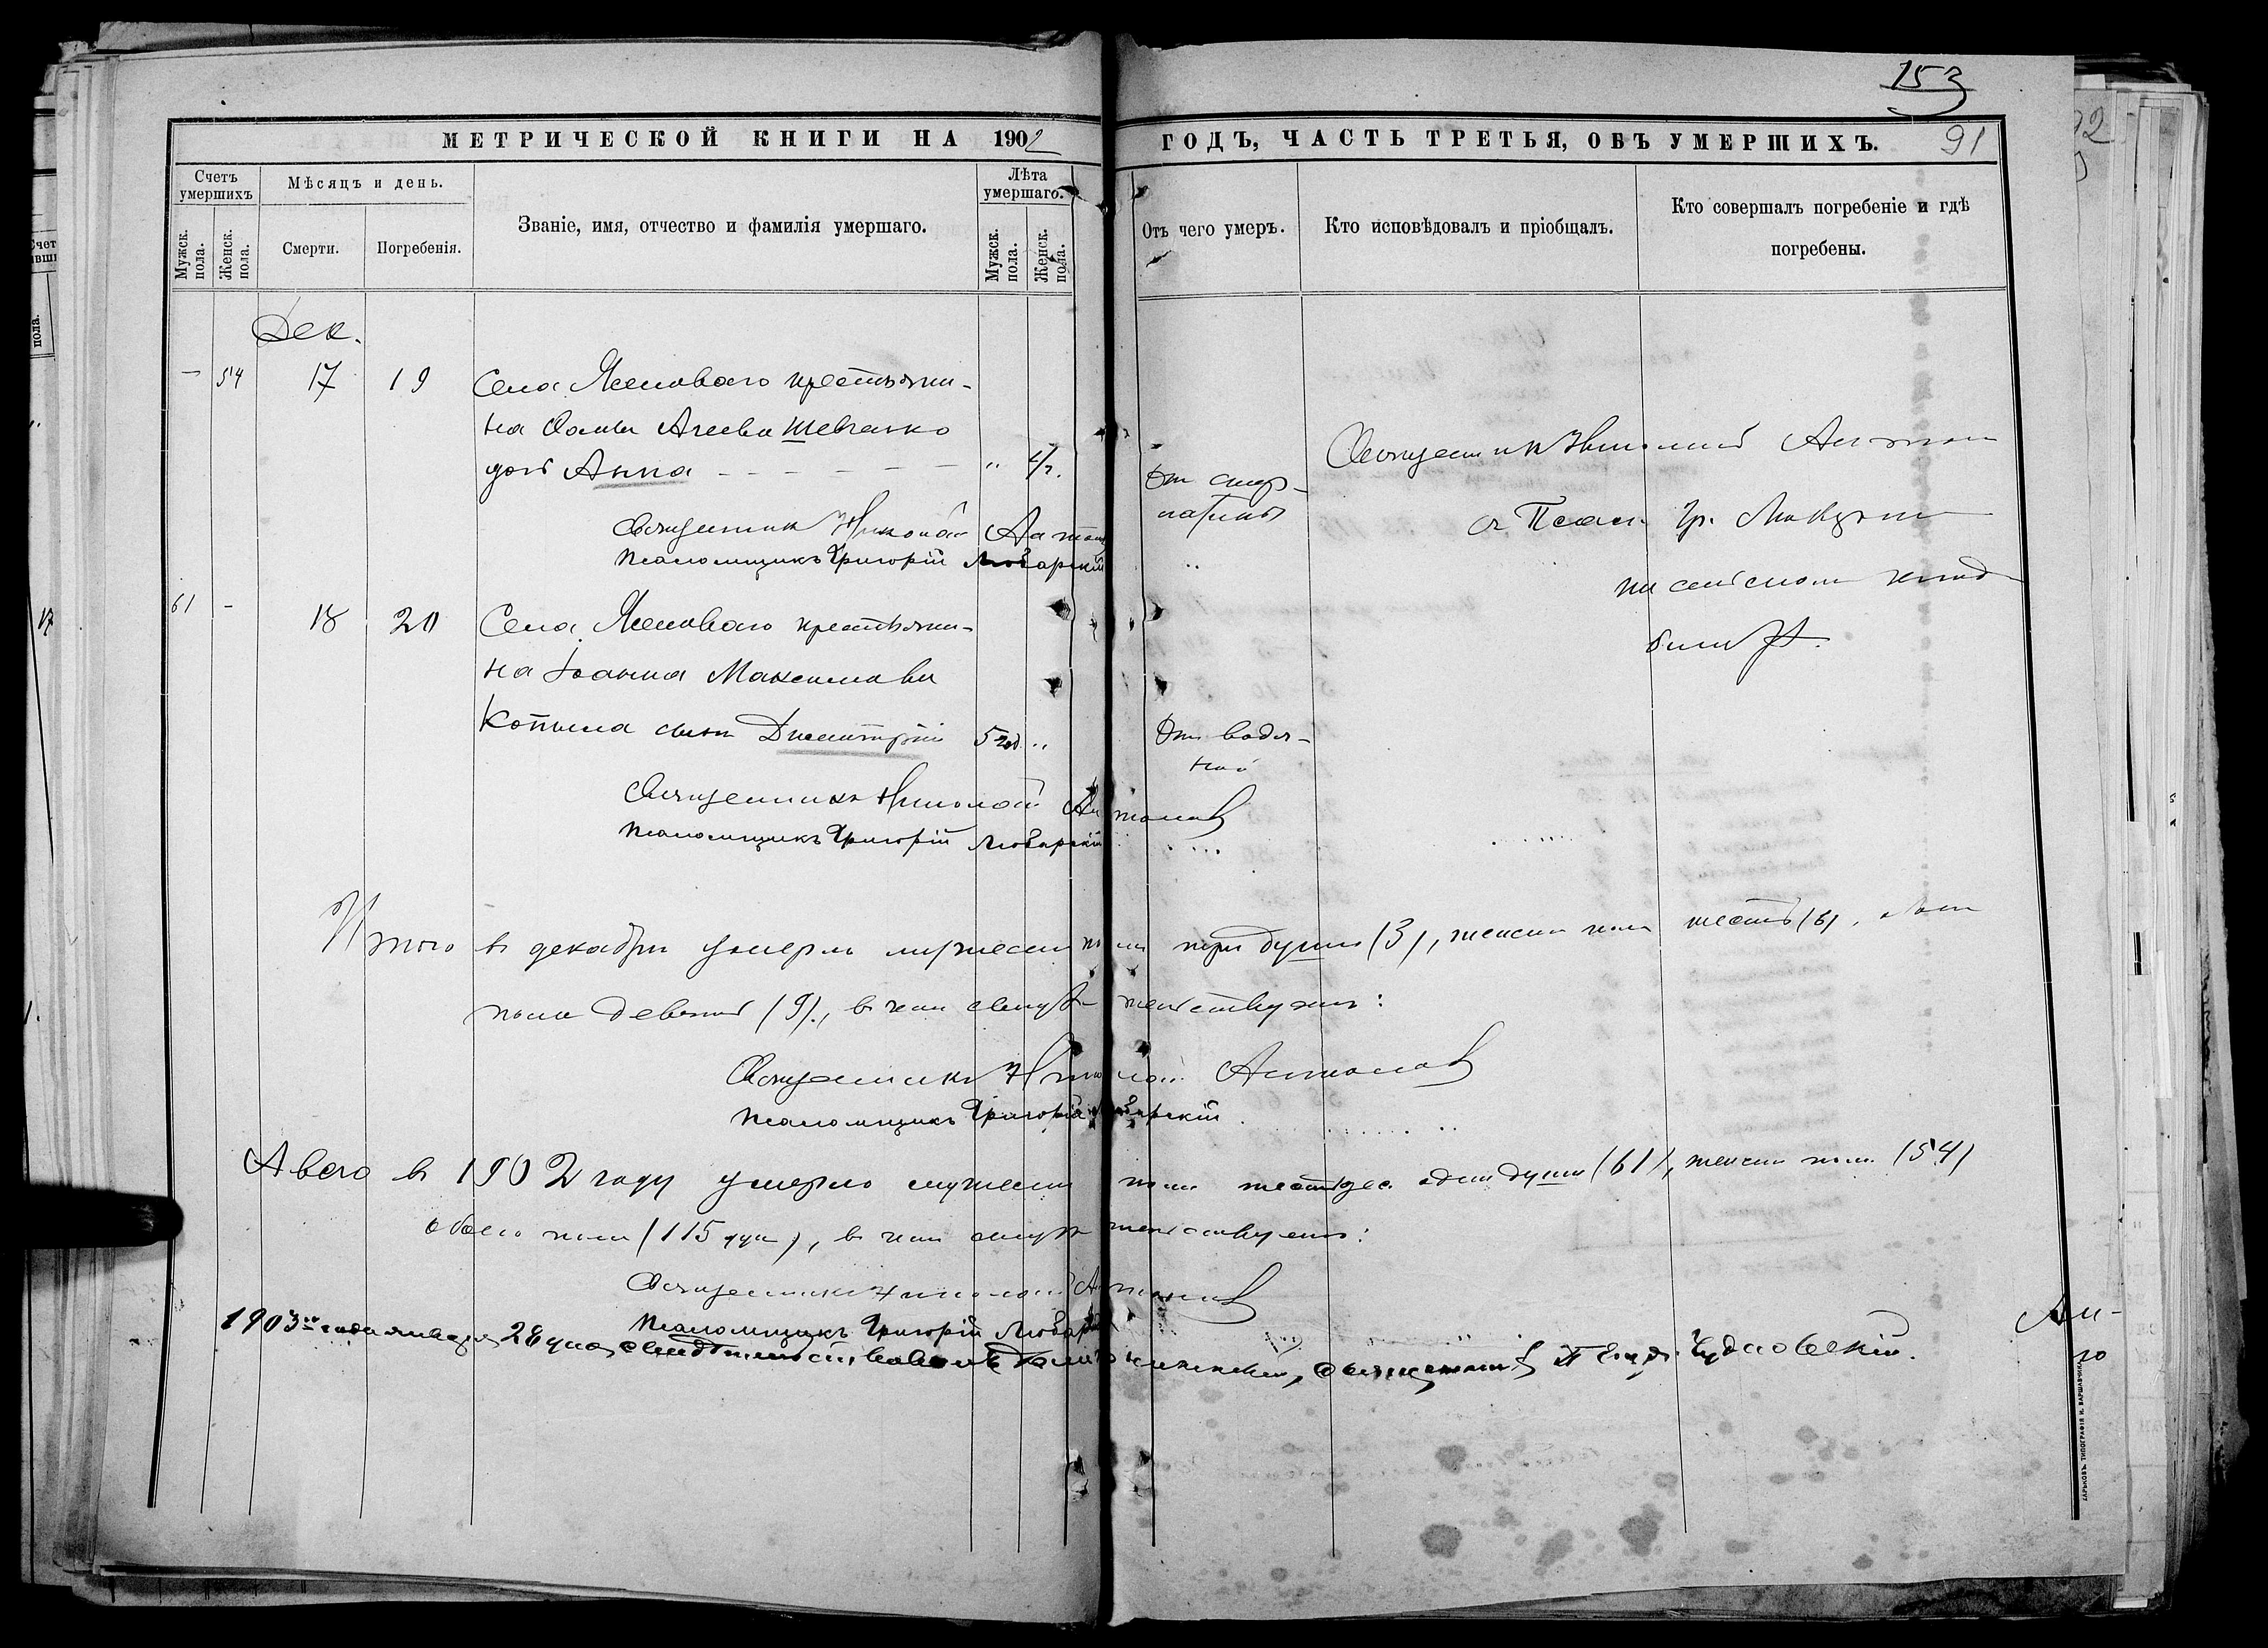 153
91
МЕТРИЧЕСКОЙ КНИГИ НА 1902
ГОДЪ, ЧАСТЬ ТРЕТЬЯ, ОБЪ УМЕРШИХЪ.
Счетъ умершихъ
Мужск. пола.
Женск. пола.
Мѣсяцъ и день.
Смерти.
Погребенія.
Званіе, имя, отчество и фамилія умершаго.
Лѣта умершаго.
Мужск. пола.
Женск. пола.
Отъ чего умеръ.
Кто исповѣдовалъ и пріобщалъ.
Кто совершалъ погребеніе и гдѣ погребены.
Дек.
— 54 17 19 Села крестьяни-
на Шевченко
дочь Анна
От скар-
латины
Священник Николай Антонов
Псаломщикъ Григорій Любарскій
Священник Николай Антонов
с Псал. Гр.
на сельском клад-
бищѣ.
61 - 18 20 Села крестьяни-
на Іоанна Максимова
Копыла сын Димитрій 5 год. "
От водян-
ной
Священникъ Николай Антонов
Псаломщикъ Григорій Любарскій
Итого в декабрѣ умерло мужеска пола три души (3), женска пола шесть (6), обоего
пола девять (9), в чем свидѣтельствуемъ:
Священникъ Николай Антонов
Псаломщикъ Григорій Любарскій
А всего в 1902 году умерло мужеска пола шестьдес. одна душа (61), женска пола (54)
обоего пола (115 душ), в чем свидѣтельствуемъ:
Священникъ Николай Антонов
Псаломщикъ Григорій Любарскій
1903 года января 28 дня свидѣтельствовалъ священник Чудновскій.
ХАРЬКОВЪ. ТИПОГРАФІЯ И. ВАРШАВЧИКА